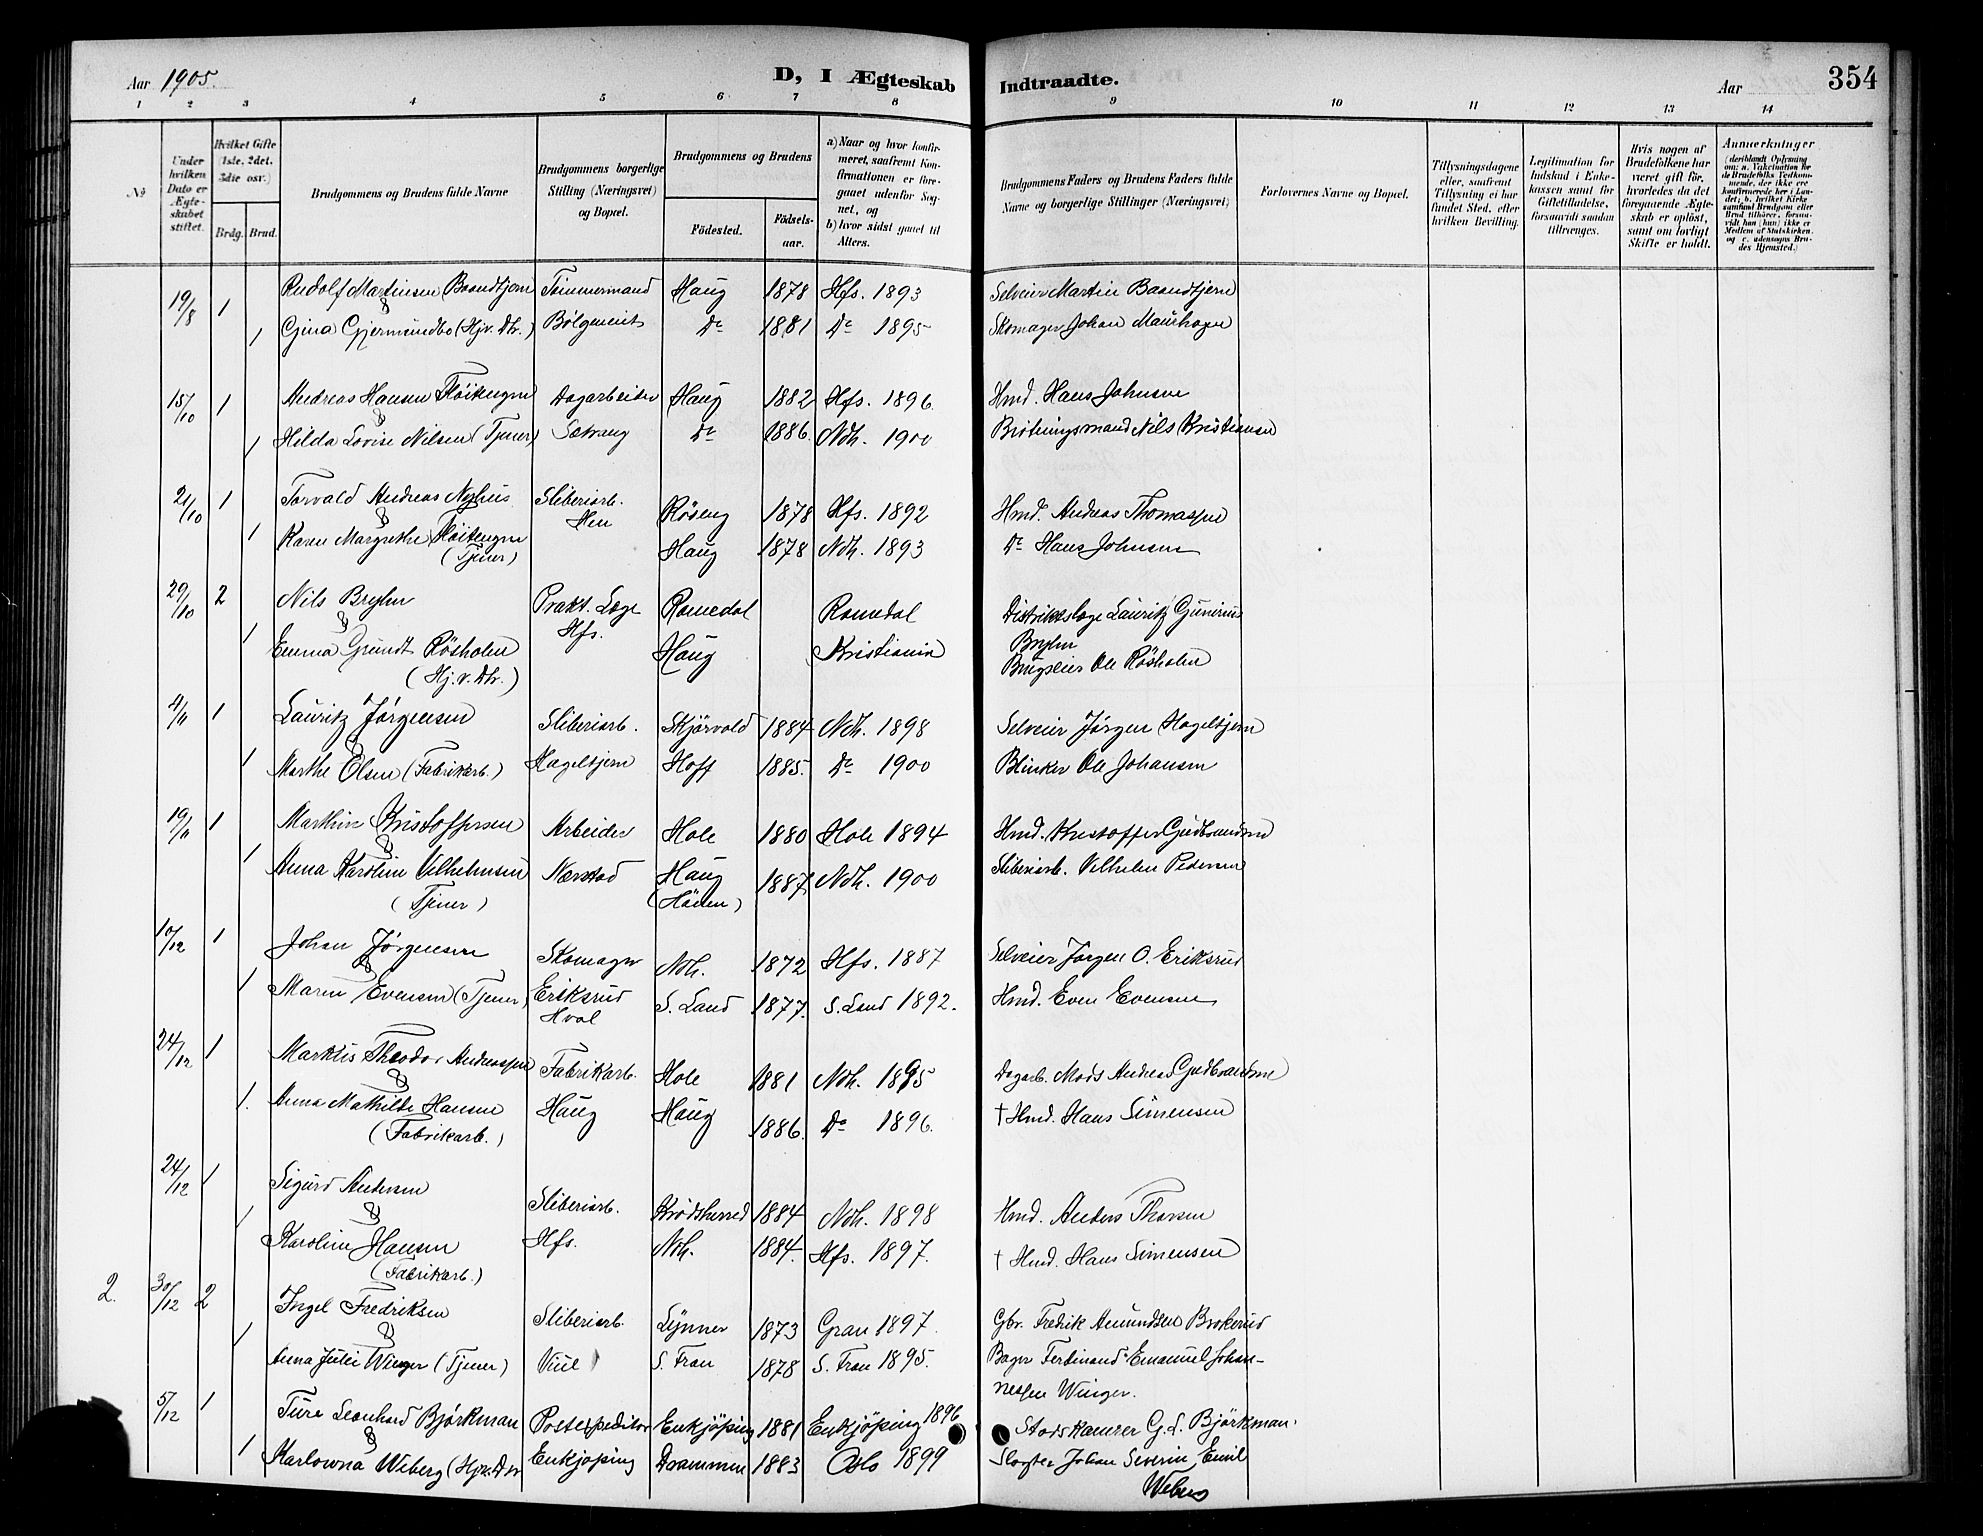 Aar 1905.
D, I Ægteskab
Indtraadte.
Aar
354
1 2 3 4 5 6 7 8 9 10 11 12 13 14
№
Under hvilken Dato er Ægteskabet stiftet.
Hvilket Gifte (1ste, 2det, 3die osv.)
Brdg. Brud.
Brudgommens og Brudens fulde Navne
Brudgommens borgerlige Stilling (Næringsvei) og Bopæl.
Brudgommens og Brudens
Fødested.
Fødselsaar.
a) Naar og hvor konfirmeret, saafremt Konfirmationen er foregaaet udenfor Sognet, og
b) hvor sidst gaaet til Alters.
Brudgommens Faders og Brudens Faders fulde Navne og borgerlige Stillinger (Næringsvei)
Forlovernes Navne og Bopæl.
Tillysningsdagene eller, saafremt Tillysning ei har fundet Sted, efter hvilken Bevilling.
Legitimation for Indskud i Enkekassen samt for Giftetilladelse, forsaavidt saadan tiltrænges.
Hvis nogen af Brudefolkene har været gift før, hvorledes da det foregaaende Ægteskab er opløst, samt om lovligt Skifte er holdt.
Anmærkninger
(deriblandt Oplysning om: a. Vakcination for de Brudefolks Vedkommende, der ikke ere konfirmerede her i Landet; b. hvilket Kirkesamfund Brudgom eller Brud tilhører, forsaavidt han (hun) ikke er Medlem af Statskirken, og c. udensogns Brudes Hjemsted.)
19/8 1 Rudolf Martinsen Baandtjern Tømmermand Haug 1878 Hfs. 1893 Selveier Martin Baandtjern
&
1 Gina Gjermundbo (Hjv. Dtr.) Bølgeneint Do 1881 Do 1895 Skomager Johan Maurhagen
15/10 1 Andreas Hansen Fløitengen Dagarbeider Haug 1882 Hfs. 1896. Hmd. Hans Johnsen
&
1 Hilda Lovise Nilsen (Tjener) Sætrang Do 1886. Ndh. 1900 Brøtningsmand Nils Kristiansen
21/10 1 Torvald Andreas Nyhus Sliberiarb. Røseng 1878 Hfs. 1892 Hmd. Andreas Thomassen
& Hen
1 Karen Margrethe Fløitengen Haug 1878 Ndh. 1893 Do Hans Johnsen
(Tjener)
29/10 2 Nils Bryhn Prakt. Læge Romedal Romedal Distriktslæge Lauritz Gunerius
& Hfs. Bryhn
1 Emma Grundt Røsholm Haug Kristiania Brugseier Ole Røsholm
(Hj. v. Dtr.)
4/11 1 Lauritz Jørgensen Sliberiarb. Skjørvold 1884 Ndh. 1898 Selveier Jørgen Hagelstjern
&
1 Marthe Olsen (Fabrikarb.) Hagelstjern Hoff 1885. Do 1900 Blinker Ole Johansen
19/11 1 Marthin Kristoffersen Arbeider Hole 1880 Hole 1894 Hmd. Kristoffer Gudbrandsen
&
1 Anna Karoline Vilhelmsen Nærstad Haug 1887 Ndh. 1900 Sliberiarb. Vilhelm Pedersen
(Tjener) (Hønen)
10/12 1 Johan Jørgensen Skomager Ndh. 1872 Hfs. 1887 Selveier Jørgen O. Eriksrud
&
1 Maren Evensen (Tjener) Eriksrud S. Land 1877. S. Land 1892. Hmd. Even Evensen
Hval
24/12 1 Marktis Theodor Andreassen Fabrikarb. Hole 1881 Ndh. 1895 Dagarb. Mads Andreas Gudbrandsen
&
1. Anna Mathilde Hansen Haug Haug 1886. Do 1896. † Hmd. Hans Simensen
(Fabrikarb.)
24/12 1 Sigurd Andersen Sliberiarb. Krødsherred 1884 Ndh. 1898 Hmd. Anders Thorsen
&
1 Karoline Hansen Hfs. Ndh. 1884. Hfs. 1897. † Hmd. Hans Simensen
(Fabrikarb.)
2. 30/12 2 Ingel Fredriksen Sliberiarb. Lynner 1873 Gran 1897. Gbr. Fredrik Amundsen Brokerud
&
1 Anna Julie Winger (Tjener) Viul S. Fron 1878 S. Fron 1895. Bager Ferdinand Emanuel Johan-
nessen Winger.
5/12 1 Ture Leonhard Björkman Postexpeditør Enkjöping 1881 Enkjöping 1896 Stadskamrer G. L. Björkman.
&
1 Karlowna Weberg (Hjv. Dtr Enkjöping Drammen 1883 Oslo 1899 Slagter Johan Severin Emil
Weberg